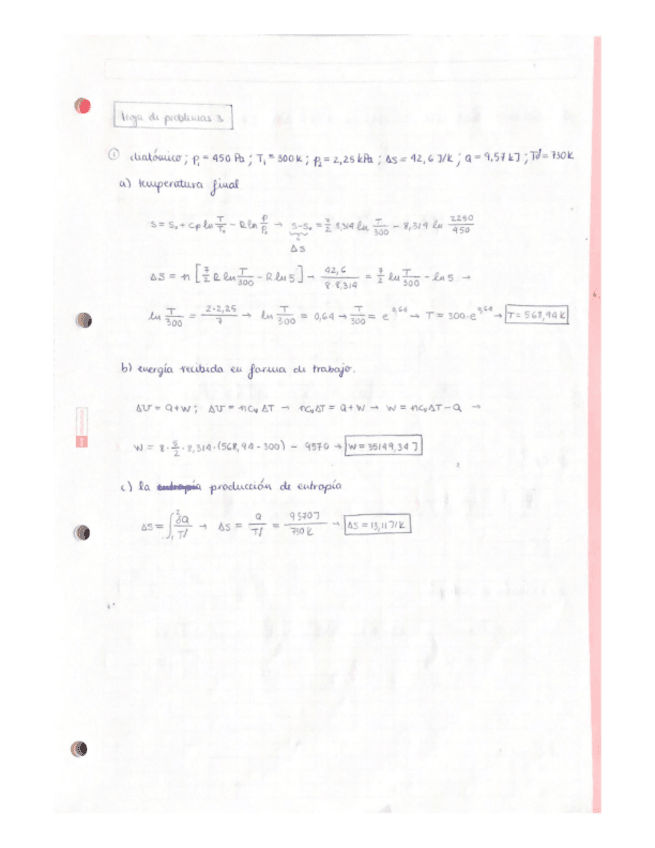 Hoja de problemas 3
① diatómico ; p₁ = 450 Pa ; T₁ = 300 K ; p₂ = 2,25 kPa ; ΔS = 42,6 J/K ; Q = 9,57 kJ ; Tf = 730 K
a) temperatura final
S = S₀ + cp ln T/T₀ - R ln p/p₀ → S-S₀ = 7/2 8,314 ln T/300 - 8,314 ln 2250/450
ΔS
ΔS = n [7/2 R ln T/300 - R ln 5] → 42,6/8·8,314 = 7/2 ln T/300 - ln 5 →
ln T/300 = 2·2,25/7 → ln T/300 = 0,64 → T/300 = e^0,64 → T = 300·e^0,64 → T = 568,94 K
b) energía recibida en forma de trabajo.
ΔU = Q + W ; ΔU = n cv ΔT → n cv ΔT = Q + W → W = n cv ΔT - Q →
W = 8 · 5/2 · 8,314 · (568,94 - 300) - 9570 → W = 35149,34 J
c) la entropía producción de entropía
ΔS = ∫₁² δQ/Tf → ΔS = Q/Tf = 9570 J/730 K → ΔS = 13,11 J/K